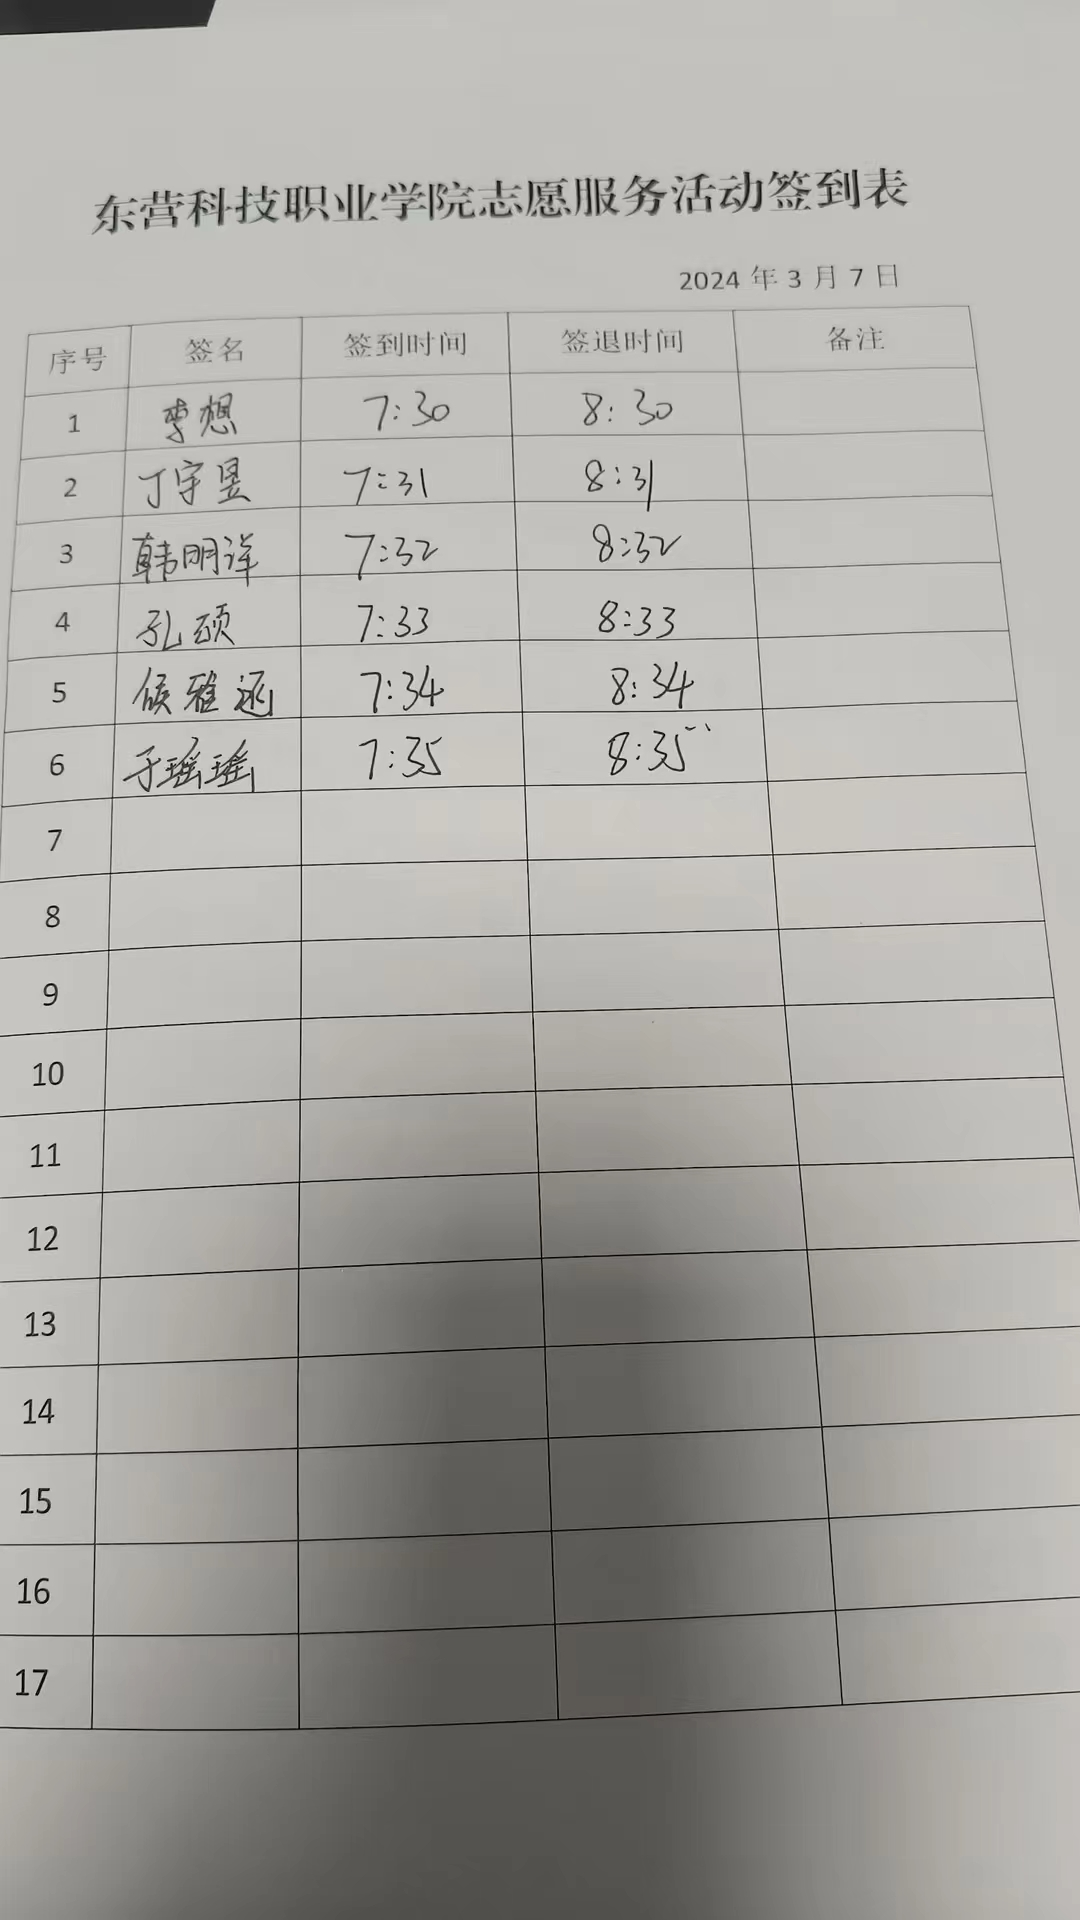 东营科技职业学院志愿服务活动签到表
2024 年 3 月 7 日
序号 签名 签到时间 签退时间 备注
1 李想 7:30 8:30
2 丁宇昱 7:31 8:31
3 韩明洋 7:32 8:32
4 孔硕 7:33 8:33
5 候雅涵 7:34 8:34
6 于瑶瑶 7:35 8:35
7
8
9
10
11
12
13
14
15
16
17